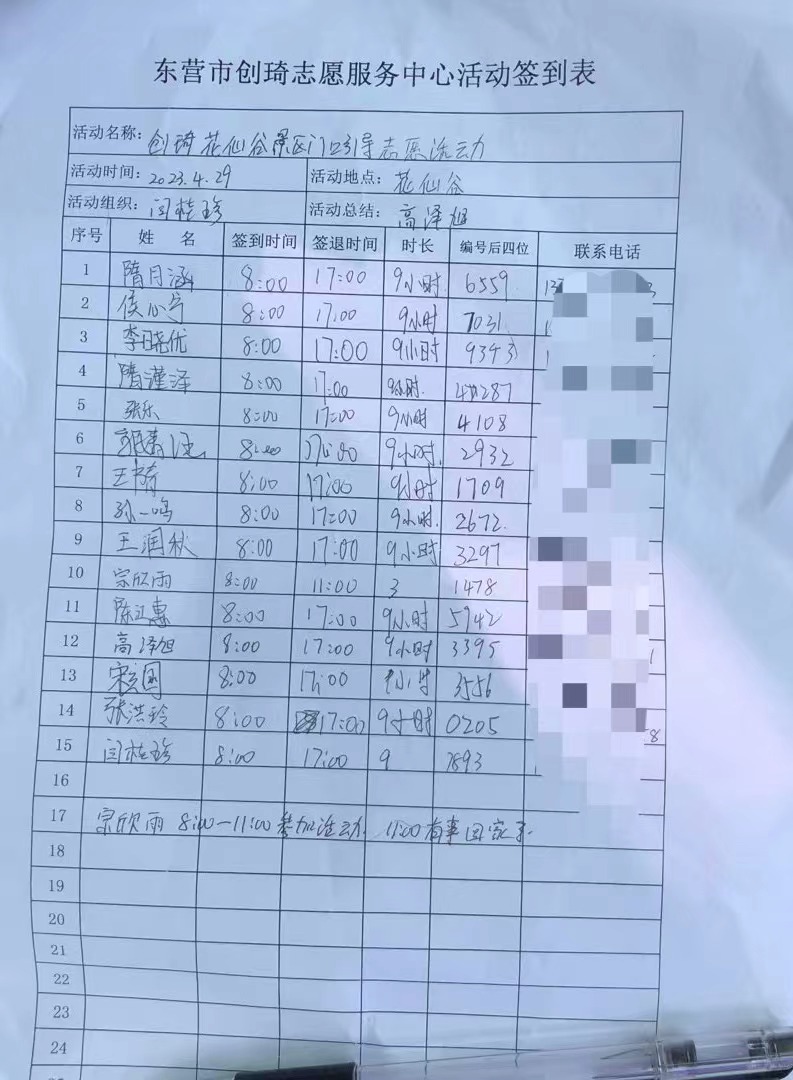 东营市创琦志愿服务中心活动签到表
活动名称: 创琦花仙谷景区门口引导志愿活动
活动时间: 2023.4.29 活动地点: 花仙谷
活动组织: 闫桂珍 活动总结: 高泽旭
序号 姓 名 签到时间 签退时间 时长 编号后四位 联系电话
1 隋月涵 8:00 17:00 9小时 6559
2 侯心宁 8:00 17:00 9小时 7031
3 李晓优 8:00 17:00 9小时 9343
4 隋瑾泽 8:00 17:00 9小时
5 张乐 8:00 17:00 9小时 4108
6 8:00 17:00 9小时 2932
7 8:00 17:00 9小时 1709
8 孙一鸣 8:00 17:00 9小时 2672
9 王润秋 8:00 17:00 9小时 3297
10 宗欣雨 8:00 11:00 3 1478
11 8:00 17:00 9小时 5942
12 高泽旭 8:00 17:00 9小时 3395 1
13 8:00 17:00 9小时 3556
14 张洪玲 8:00 17:00 9小时 0205 8
15 闫桂珍 8:00 17:00 9 7893
16
17 宗欣雨 8:00-11:00参加活动. 11:00有事回家了.
18
19
20
21
22
23
24